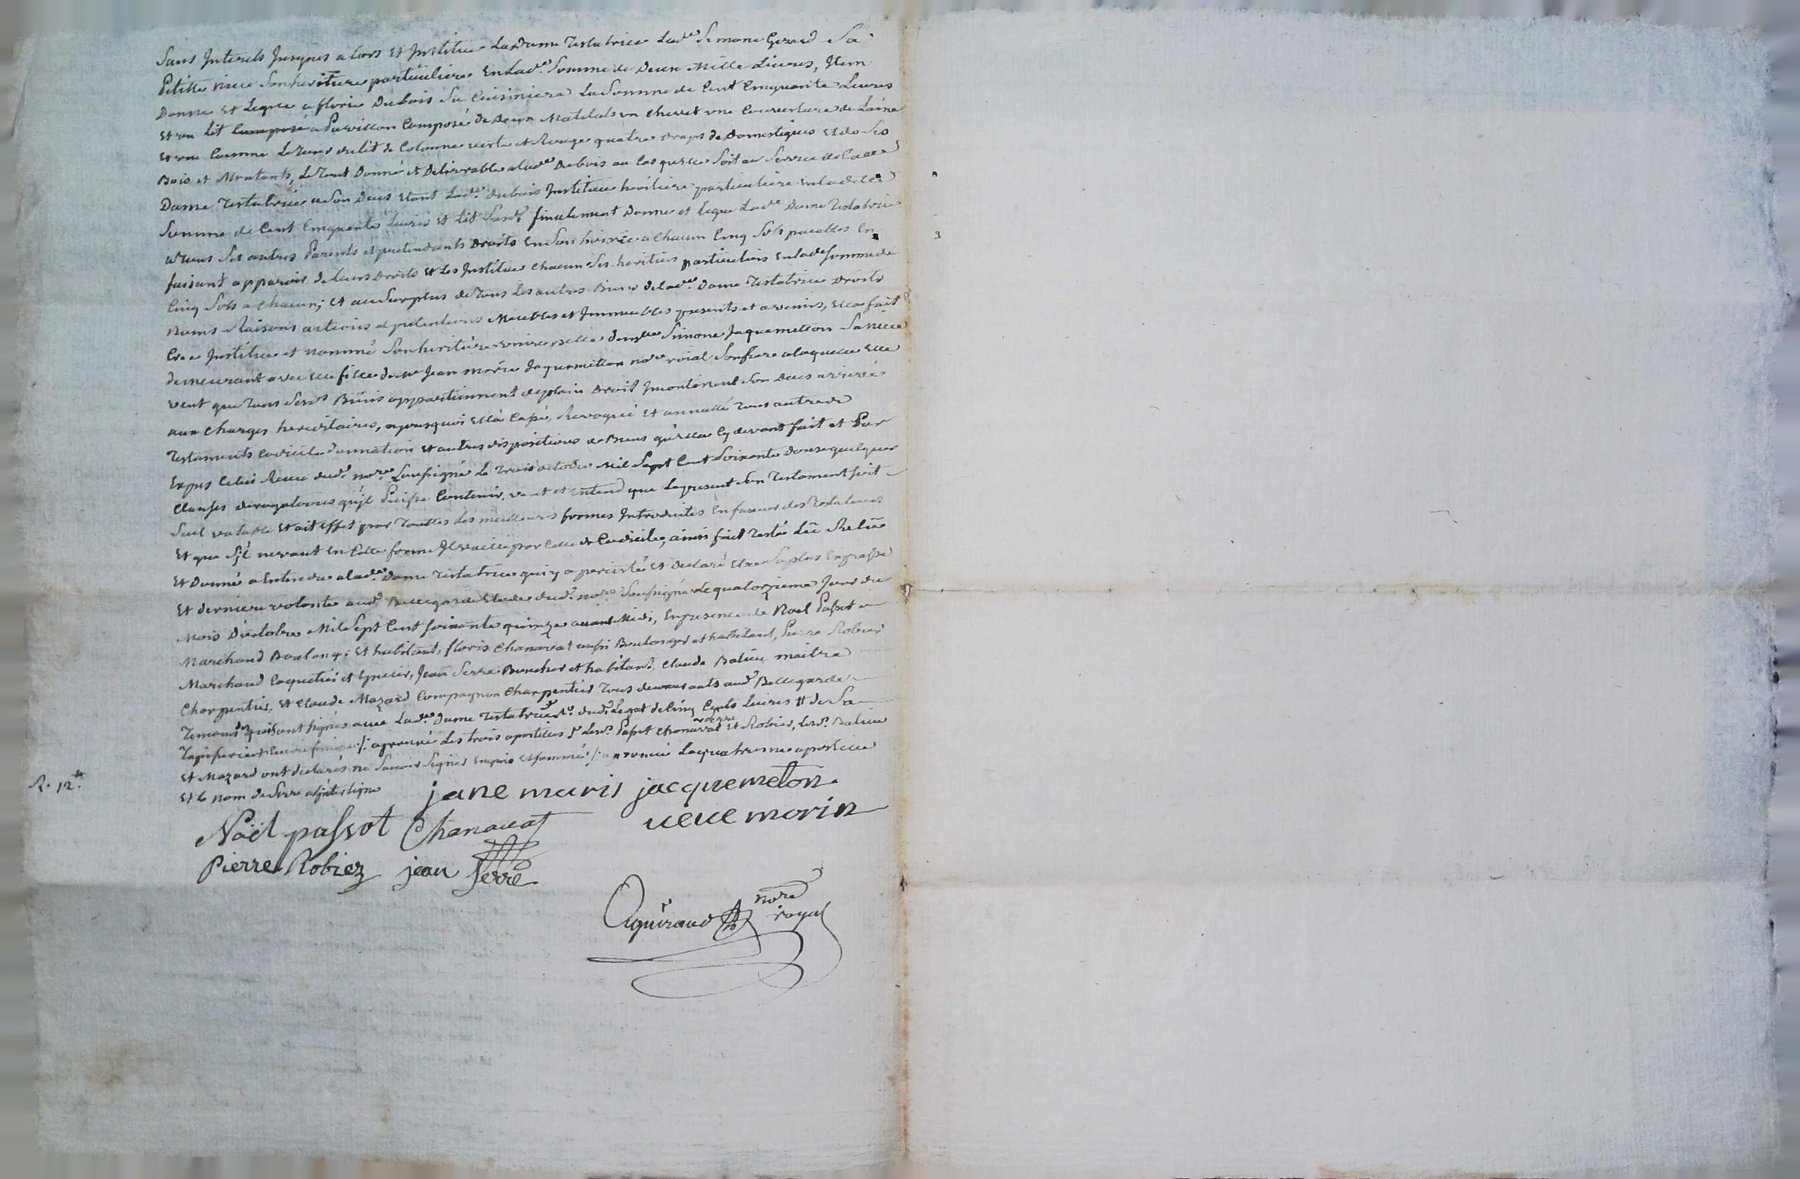 Sans Interets Jusques alors Et Institue Ladame Testatrice Lad.e Simone Gerard Sa
Petitte niece Son heritiere particuliere En Lad.e Somme de Deux Mille Livres, Item
Donne Et Legue a florie Dubois Sa Cuisiniere La Somme de Cent Cinquante Livres
Et un Lit composé a Pavillon Composé de Deux Matelats un Chevet une Couverture de Laine
Et une Coueme Le Tour du lit de Cotonne verte et Rouge quatre draps de Domestiques Et de
Bois et Montants, Le Tout Donné et Delivrable alad.e Dubois au Cas quelle Soit au Service de Lad.e
Dame Testatrice a Son Deces Etant Lad.e Dubois Instituée heritiere particuliere En ladelle
Somme de Cent Cinquante Livres et Lit Susd.t finalement Donne et Legue Lad.e Dame Testatrice
a Tous Ses autres Parents et pretendants Droits En Son hoirie a Chacun Cinq Sols payables En
faisant apparoir de Leurs Droits Et Les Institue Chacun Ses heritiers particuliers En lad.e Somme de
Cinq Sols a Chacun; Et au Surplus de Tous Les autres Biens de lad.e Dame Testatrice Droits
Noms Raisons actions et pretentions Meubles et Immeubles presents et avenirs, Elle a fait
Cree Institué et nommé Son heritiere universelle dem.lle Simone Jaquemetton Sa Niece
demeurant avec elle fille de m.e Jean marie Jaquemetton no.re roial Son frere a laquelle Elle
veut que Tous Sesd.s Biens appartiennent de plein Droit Incontinent Son Deces arrivé
aux Charges hereditaires, a Casse, Revoqué Et annullé Tous autres
Testaments Codicile donnation Et autres dispositions de Biens qu'elle a Cy devant fait et Par
Expres Celui Receu dud.t no.re Soussigné Le Trois octobre Mil Sept Cent Soixante Douze quelques
Clauses derogatoires qu'il Puisse Contenir, veut et Entend que Le present Son Testament Soit
Seul valable Et ait Effet par Touttes Les meilleures formes Introduites En faveur des Testateurs
Et que S'il ne vaut En Cette forme Il vaille par Celle de Codicile, ainsi fait Testé Lû Relû
Et Donné a Entendre a lad.e Dame Testatrice qui y a persisté Et Declaré Etre Sa plus Expresse
Et derniere volonte aud.t Bellegarde Etude dud.t no.re Soussigné Le quatorzieme Jour du
Mois D'octobre Mil Sept Cent soixante quinze avant Midi, En presence de Noel Passot
Marchand Boulang.r Et habitant, floris Chanavat aussi Boulanger et habitant, Pierre Robier
Marchand Coquetier et Epicier, Jean Serre Boucher et habitant, Claude Balieu maitre
Charpentier, Et Claude Mazard Compagnon Charpentier Tous demeurants aud.t Bellegarde
Temoins qui ont Signés avec Lad.e dame Testatrice dud.t Legat de Cinq Cents Livres de Sa
approuvé Les trois apostilles Lesd. Passot Chanavat Serre Et Robier, Lesd.s Balieu
Et Mazard ont declarés ne Savoir Signer Enquis Et Sommés approuvé La quatrieme apostille
Et Le nom de Serre ligne
R. 12.tt
jane maris jacquemeton
Noël passot Chanavat
veuve morin
Pierre Robiez jean Serre
Aguiraud no.re royal